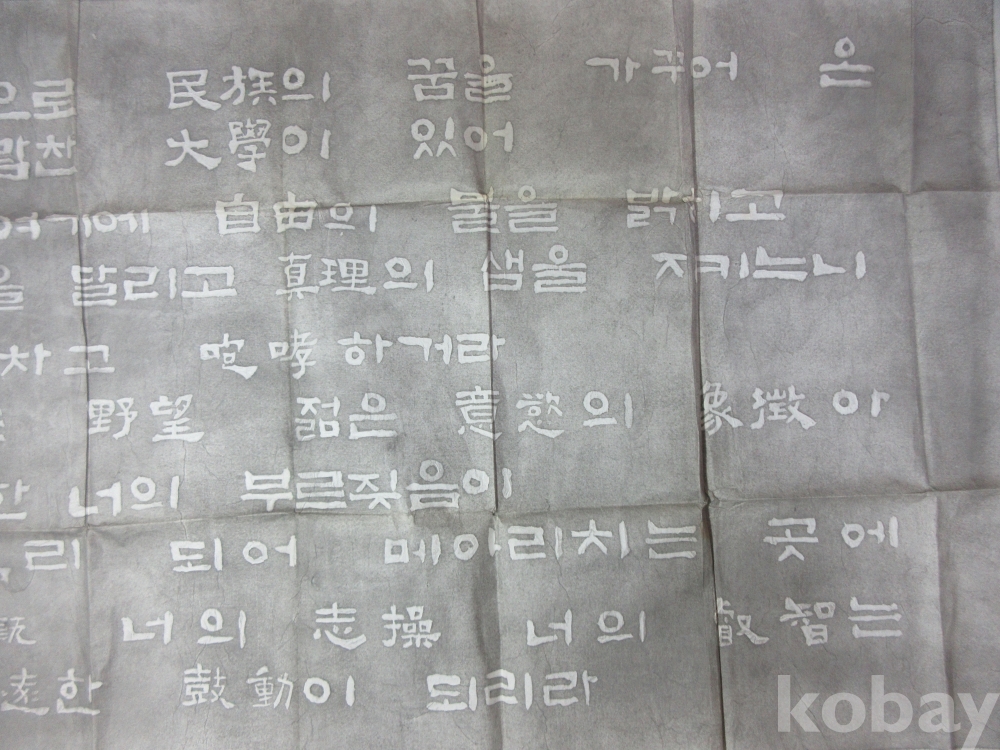 으로 民族의 꿈을 가꾸어 온
참찬 大學이 있어
여기에 自由의 불을 밝히고
을 달리고 真理의 샘을 지키느니
차고 咆哮하거라
野望 젊은 意慾의 象徵아
한 너의 부르짖음이
리 되어 메아리치는 곳에
너의 志操 너의 叡智는
遠한 鼓動이 되리라
kobay